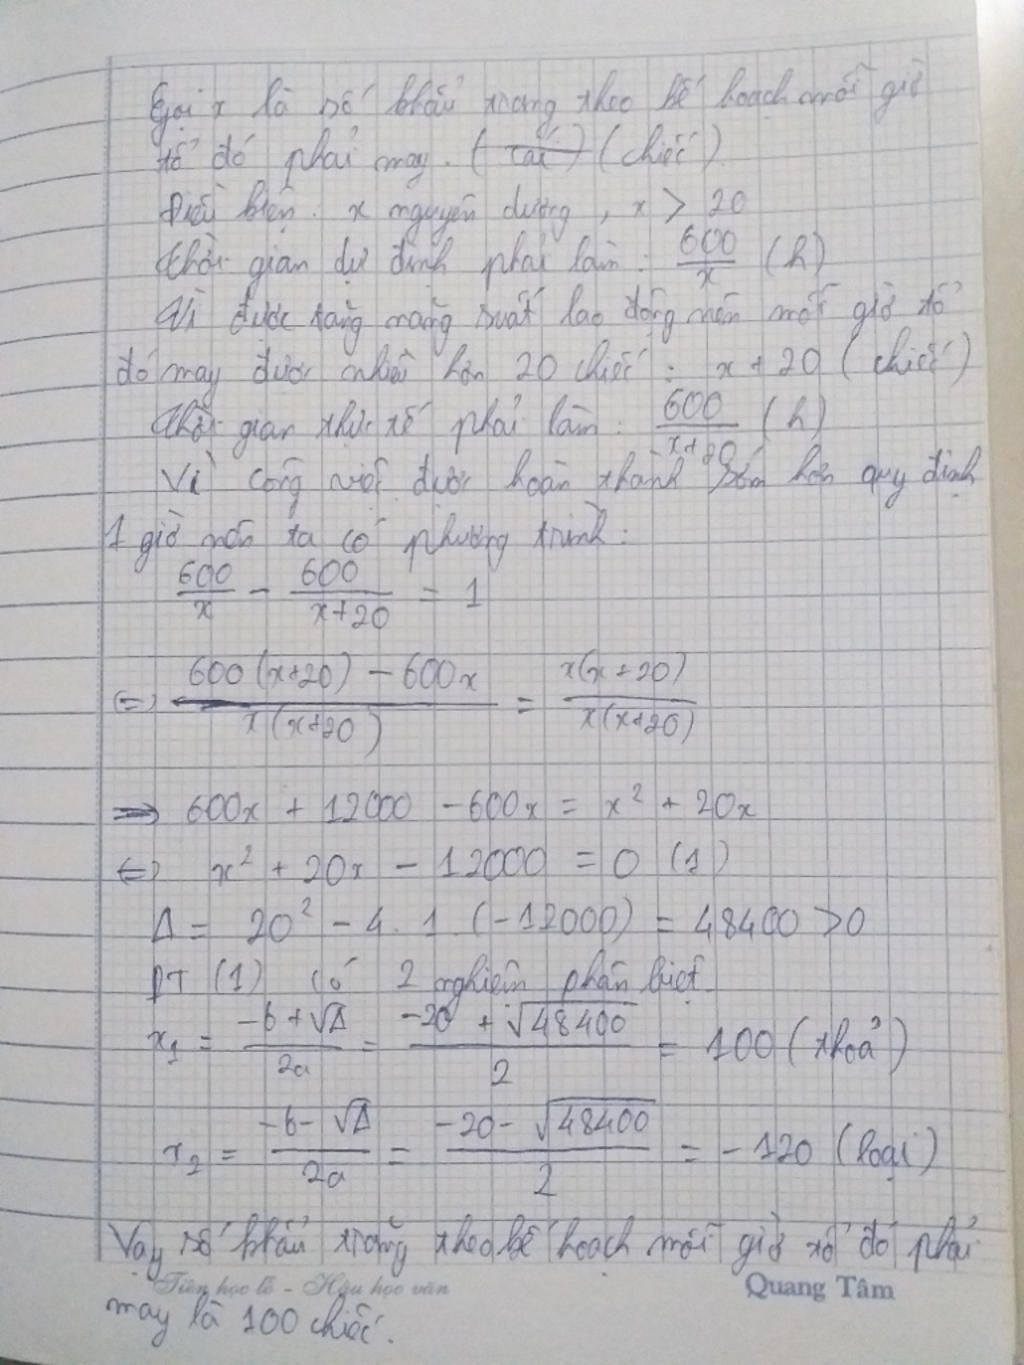 Gọi x là số khẩu trang theo kế hoạch mỗi giờ
tổ đó phải may. (cái) (chiếc)
Điều kiện: x nguyên dương, x > 20
Thời gian dự định phải làm: 600/x (h)
Vì được tăng năng suất lao động nên mỗi giờ tổ
đó may được nhiều hơn 20 chiếc: x + 20 (chiếc)
Thời gian thực tế phải làm: 600/(x+20) (h)
Vì công việc được hoàn thành sớm hơn quy định
1 giờ nên ta có phương trình:
600/x - 600/(x+20) = 1
<=> (600(x+20) - 600x)/(x(x+20)) = x(x+20)/(x(x+20))
=> 600x + 12000 - 600x = x² + 20x
<=> x² + 20x - 12000 = 0 (1)
Δ = 20² - 4.1 (-12000) = 48400 > 0
PT (1) có 2 nghiệm phân biệt.
x₁ = (-b + √Δ)/2a = (-20 + √48400)/2 = 100 (thoả)
x₂ = (-b - √Δ)/2a = (-20 - √48400)/2 = -120 (loại)
Vậy số khẩu trang theo kế hoạch mỗi giờ tổ đó phải
Tiên học lễ - Hậu học văn Quang Tâm
may là 100 chiếc.